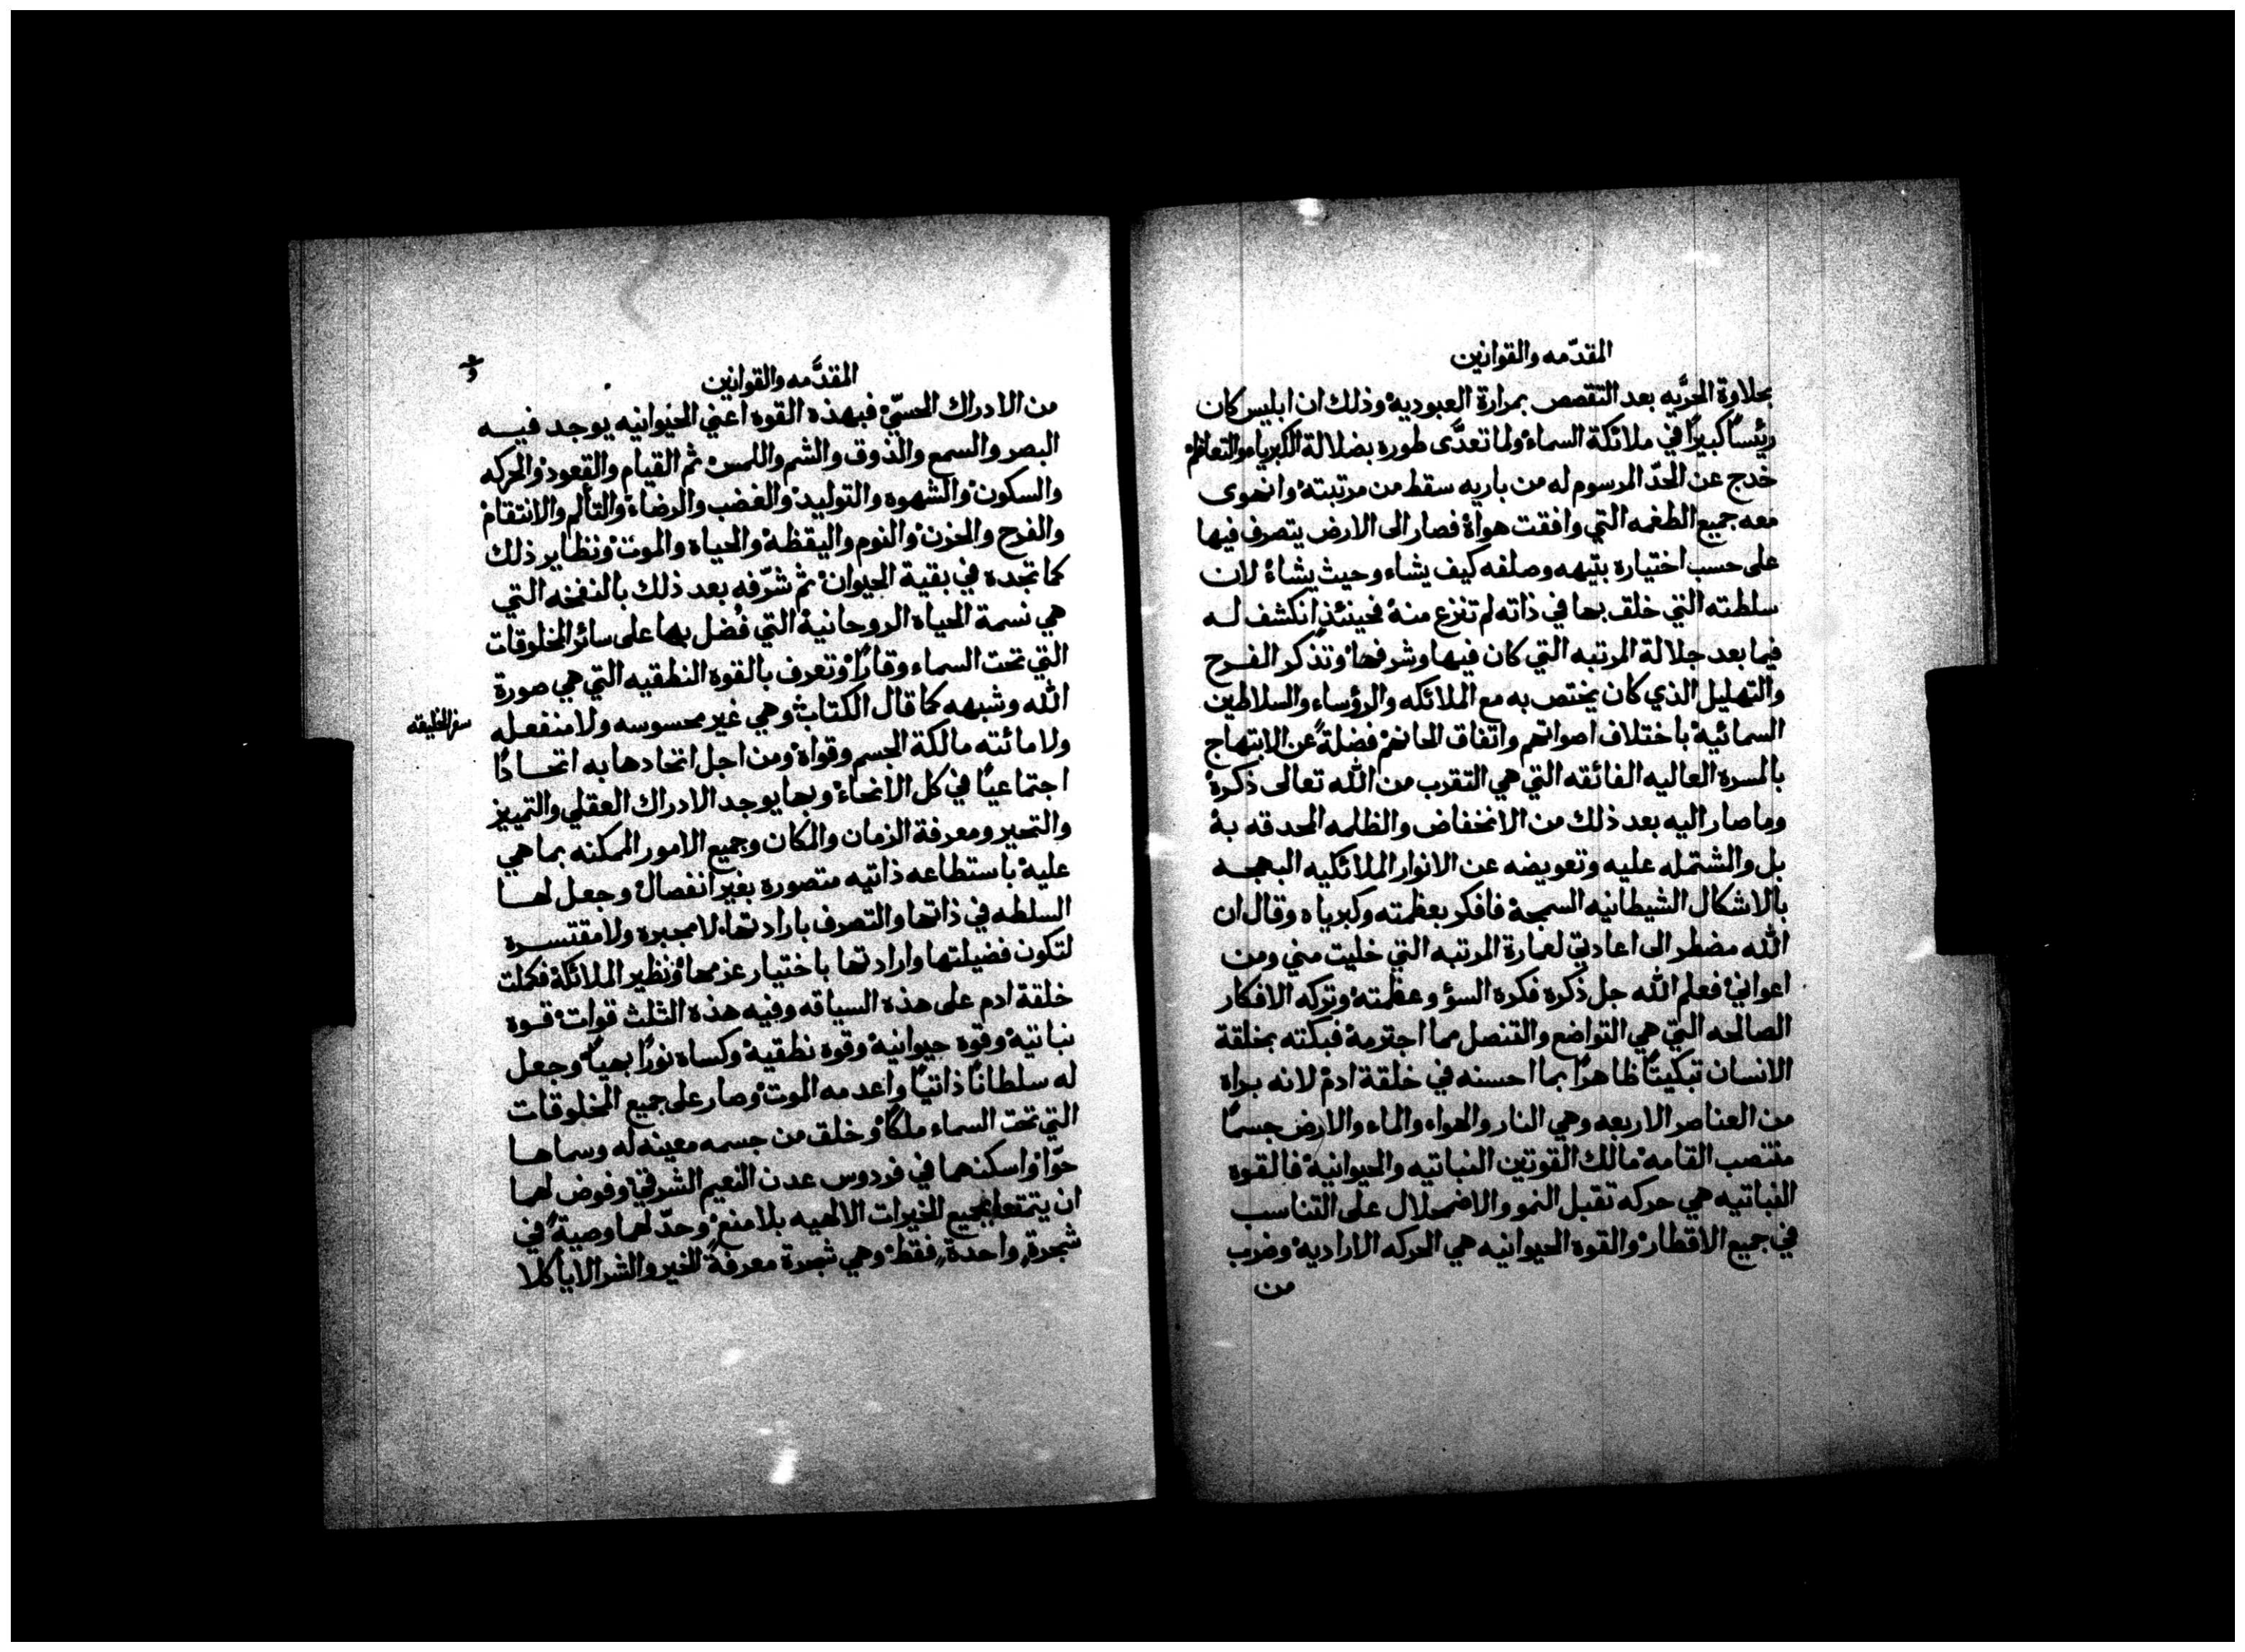 المقدّمه والقوانين
بحلاوة الحرَّيه بعد التقصص بمرارة العبوديه وذلك ان ابليس كان
رئيسًا كبيرًا في ملائكة السماء ولما تعدَّى طوره بضلالة الكبرياء والتعاظم
خدج عن الحدّ المرسوم له من باريه سقط من مرتبته وانهوى
معه جميع الطغمه التي وافقت هواهُ فصار الى الارض يتصرف فيها
على حسب اختياره بتيهه وصلفه كيف يشاء وحيث يشاءُ لان
سلطته التي خلق بها في ذاته لم تنزع منهُ فحينئذٍ انكشف له
فيما بعد جلالة المرتبه التي كان فيها وشرفها وتذكر الفرح
والتهليل الذي كان يختص به مع الملائكه والرؤساء والسلاطين
السمائيه باختلاف اصواتهم واتفاق الحانهم فضلةً عن الابتهاج
بالمسره العاليه الفائقه التي هي التقرب من الله تعالى ذكرهُ
وما صار اليه بعد ذلك من الانخفاض والظلمه المحدقه بهُ
بل والشتمله عليه وتعويضه عن الانوار الملائكيه البهجه
بالاشكال الشيطانيه السمجه فافكر بعظمته وكبرياه وقال ان
الله مضطر الى اعادتي لعمارة المرتبه التي خليت مني ومن
اعواني فعلم الله جل ذكره فكره السؤ وعظمته وتركه الافكار
الصالحه التي هي التواضع والتنصل مما اجترمهُ فبكته بخلقة
الانسان تبكيتًا ظاهرًا بما احسنه في خلقة ادم لانه براه
من العناصر الاربعه وهي النار والهواء والماء والارض جسمًا
منتصب القامه مالك القوتين النباتيه والحيوانيه فالقوه
النباتيه هي حركه تقبل النمو والاضمحلال على التناسب
في جميع الاقطار والقوه الحيوانيه هي الحركه الاراديه وضرب
من
المقدَّمه والقوانين
من الادراك الحسيّ فبهذه القوه اعني الحيوانيه يوجد فيه
البصر والسمع والذوق والشم واللمس ثم القيام والقعود والحركه
والسكون والشهوه والتوليد والغضب والرضاء والتألم والانتقام
والفرح والحزن والنوم واليقظه والحياه والموت ونظاير ذلك
كما تجده في بقية الحيوان ثم شرّفه بعد ذلك بالنفخه التي
هي نسمة الحياه الروحانيه التي فُضل بها على سائر المخلوقات
التي تحت السماء وقارًا وتعرف بالقوه النطقيه التي هي صورة
الله وشبهه كما قال الكتاب وهي غير محسوسه ولا منفعله
سفر الخليقه
ولا مائته مالكة الجسم وقواه ومن اجل اتحادها به اتحادًا
اجتماعيًا في كل الأنحاء وبها يوجد الادراك العقلي والتمييز
والتحير ومعرفة الزمان والمكان وجميع الامور الممكنه بما هي
عليه باستطاعه ذاتيه متصوره بغير انفصال وجعل لها
السلطه في ذاتها والتصرف بارادتها لا مجبره ولا مقتسره
لتكون فضيلتها وارادتها باختيار عزمها ونظير الملائكة فكملت
خلقة ادم على هذه السياقه وفيه هذه الثلث قوات قوه
نباتيه وقوه حيوانيه وقوه نطقيه وكساه نورًا بهيًا وجعل
له سلطانًا ذاتيًا واعدمه الموت وصار على جميع المخلوقات
التي تحت السماء ملكًا وخلق من جسمه معينه له وسماها
حوّا واسكنهما في فردوس عدن النعيم الشرقي وفوض لهما
ان يتمتعا بجميع الخيرات الالهيه بلا منعٍ وحدّ لهما وصيةً في
شجرةٍ واحدةٍ فقط وهي شجرة معرفة الخير والشر الا ياكلا